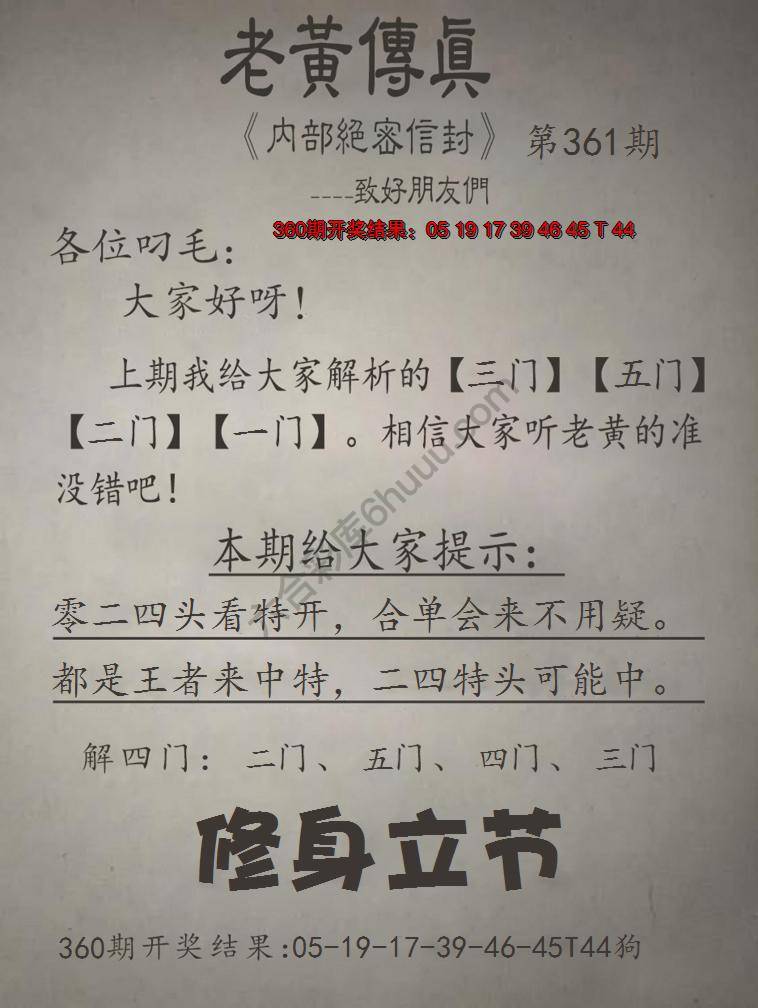 老黃傳真
《内部絕密信封》 第361期
----致好朋友們
360期开奖结果：05 19 17 39 46 45 T 44
各位叼毛：
大家好呀！
上期我给大家解析的【三门】【五门】
【二门】【一门】。相信大家听老黄的准
没错吧！
本期给大家提示：
零二四头看特开，合单会来不用疑。
都是王者来中特，二四特头可能中。
解四门： 二门、 五门、 四门、 三门
修身立节
360期开奖结果:05-19-17-39-46-45T44狗
六合彩库6huuu.com